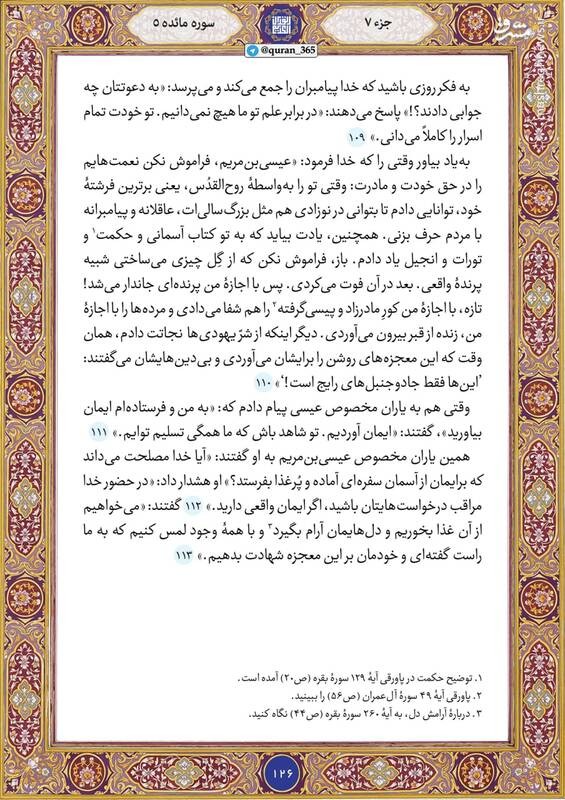 جزء ۷
سوره مائده ۵
@quran_365
مشرق
به فکر روزی باشید که خدا پیامبران را جمع می‌کند و می‌پرسد: «به دعوتتان چه
جوابی دادند؟!» پاسخ می‌دهند: «در برابر علم تو ما هیچ نمی‌دانیم. تو خودت تمام
اسرار را کاملاً می‌دانی.» ۱۰۹
به‌یاد بیاور وقتی را که خدا فرمود: «عیسی‌بن‌مریم، فراموش نکن نعمت‌هایم
را در حق خودت و مادرت: وقتی تو را به‌واسطهٔ روح‌القدُس، یعنی برترین فرشتهٔ
خود، توانایی دادم تا بتوانی در نوزادی هم مثل بزرگ‌سالی‌ات، عاقلانه و پیامبرانه
با مردم حرف بزنی. همچنین، یادت بیاید که به تو کتاب آسمانی و حکمت۱ و
تورات و انجیل یاد دادم. باز، فراموش نکن که از گِل چیزی می‌ساختی شبیه
پرندهٔ واقعی. بعد در آن فوت می‌کردی. پس با اجازهٔ من پرنده‌ای جاندار می‌شد!
تازه، با اجازهٔ من کورِ مادرزاد و پیسی‌گرفته۲ را هم شفا می‌دادی و مرده‌ها را با اجازهٔ
من، زنده از قبر بیرون می‌آوردی. دیگر اینکه از شرّ یهودی‌ها نجاتت دادم، همان
وقت که این معجزه‌های روشن را برایشان می‌آوردی و بی‌دین‌هایشان می‌گفتند:
'این‌ها فقط جادوجنبل‌های رایج است!'» ۱۱۰
وقتی هم به یاران مخصوص عیسی پیام دادم که: «به من و فرستاده‌ام ایمان
بیاورید»، گفتند: «ایمان آوردیم. تو شاهد باش که ما همگی تسلیم توایم.» ۱۱۱
همین یاران مخصوص عیسی‌بن‌مریم به او گفتند: «آیا خدا مصلحت می‌داند
که برایمان از آسمان سفره‌ای آماده و پُرغذا بفرستد؟» او هشدار داد: «در حضور خدا
مراقب درخواست‌هایتان باشید، اگر ایمان واقعی دارید.» ۱۱۲ گفتند: «می‌خواهیم
از آن غذا بخوریم و دل‌هایمان آرام بگیرد۳ و با همهٔ وجود لمس کنیم که به ما
راست گفته‌ای و خودمان بر این معجزه شهادت بدهیم.» ۱۱۳
۱. توضیح حکمت در پاورقی آیهٔ ۱۲۹ سورهٔ بقره (ص۲۰) آمده است.
۲. پاورقی آیهٔ ۴۹ سورهٔ آل‌عمران (ص۵۶) را ببینید.
۳. دربارهٔ آرامش دل، به آیهٔ ۲۶۰ سورهٔ بقره (ص۴۴) نگاه کنید.
۱۲۶